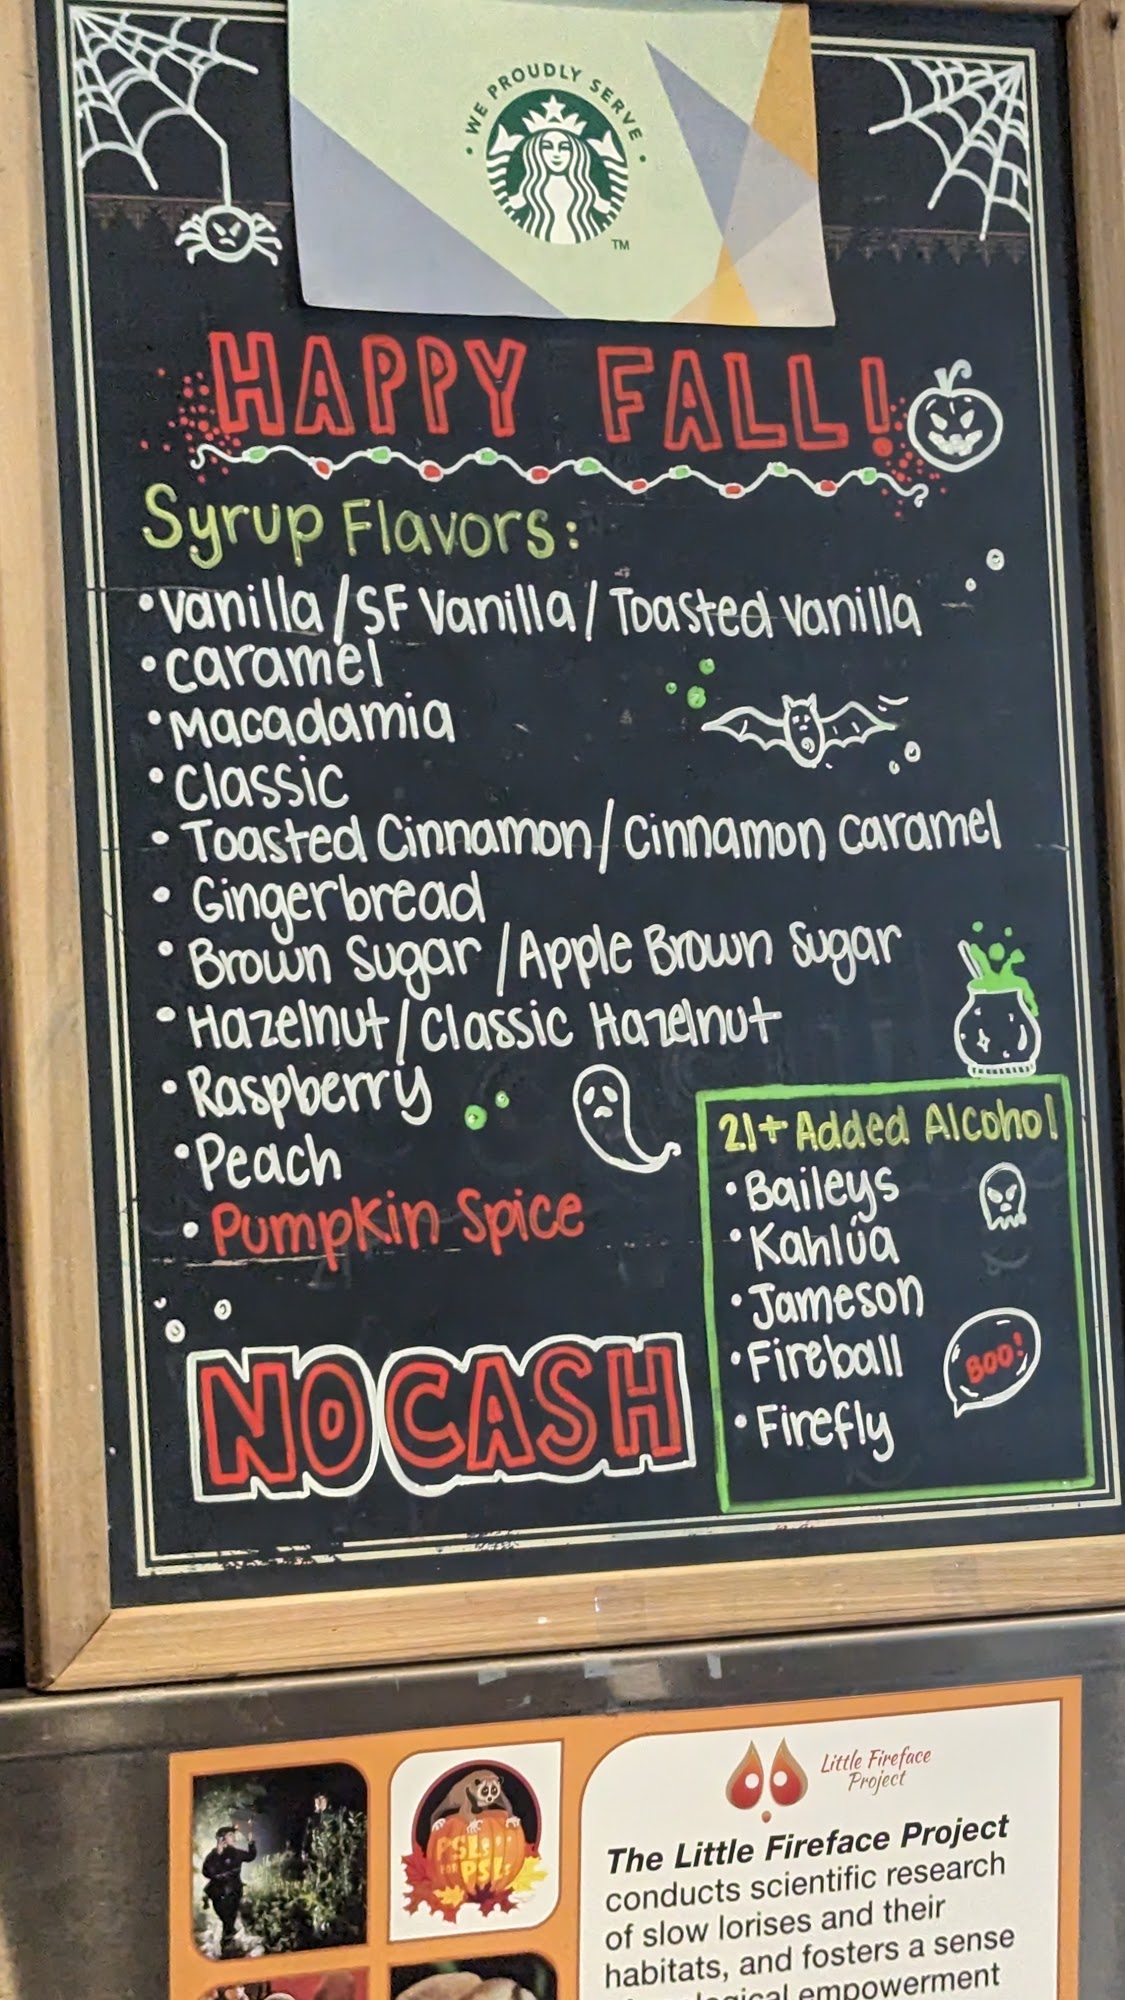 • WE PROUDLY SERVE •
TM
HAPPY FALL!
Syrup Flavors:
• Vanilla / SF Vanilla / Toasted Vanilla
• Caramel
• Macadamia
• Classic
• Toasted Cinnamon / Cinnamon Caramel
• Gingerbread
• Brown Sugar / Apple Brown Sugar
• Hazelnut / Classic Hazelnut
• Raspberry
• Peach
• Pumpkin Spice
NO CASH
21+ Added Alcohol
• Baileys
• Kahlúa
• Jameson
• Fireball
• Firefly
BOO!
PSLs
FOR
PSLs
Little Fireface
Project
The Little Fireface Project
conducts scientific research
of slow lorises and their
habitats, and fosters a sense
empowerment